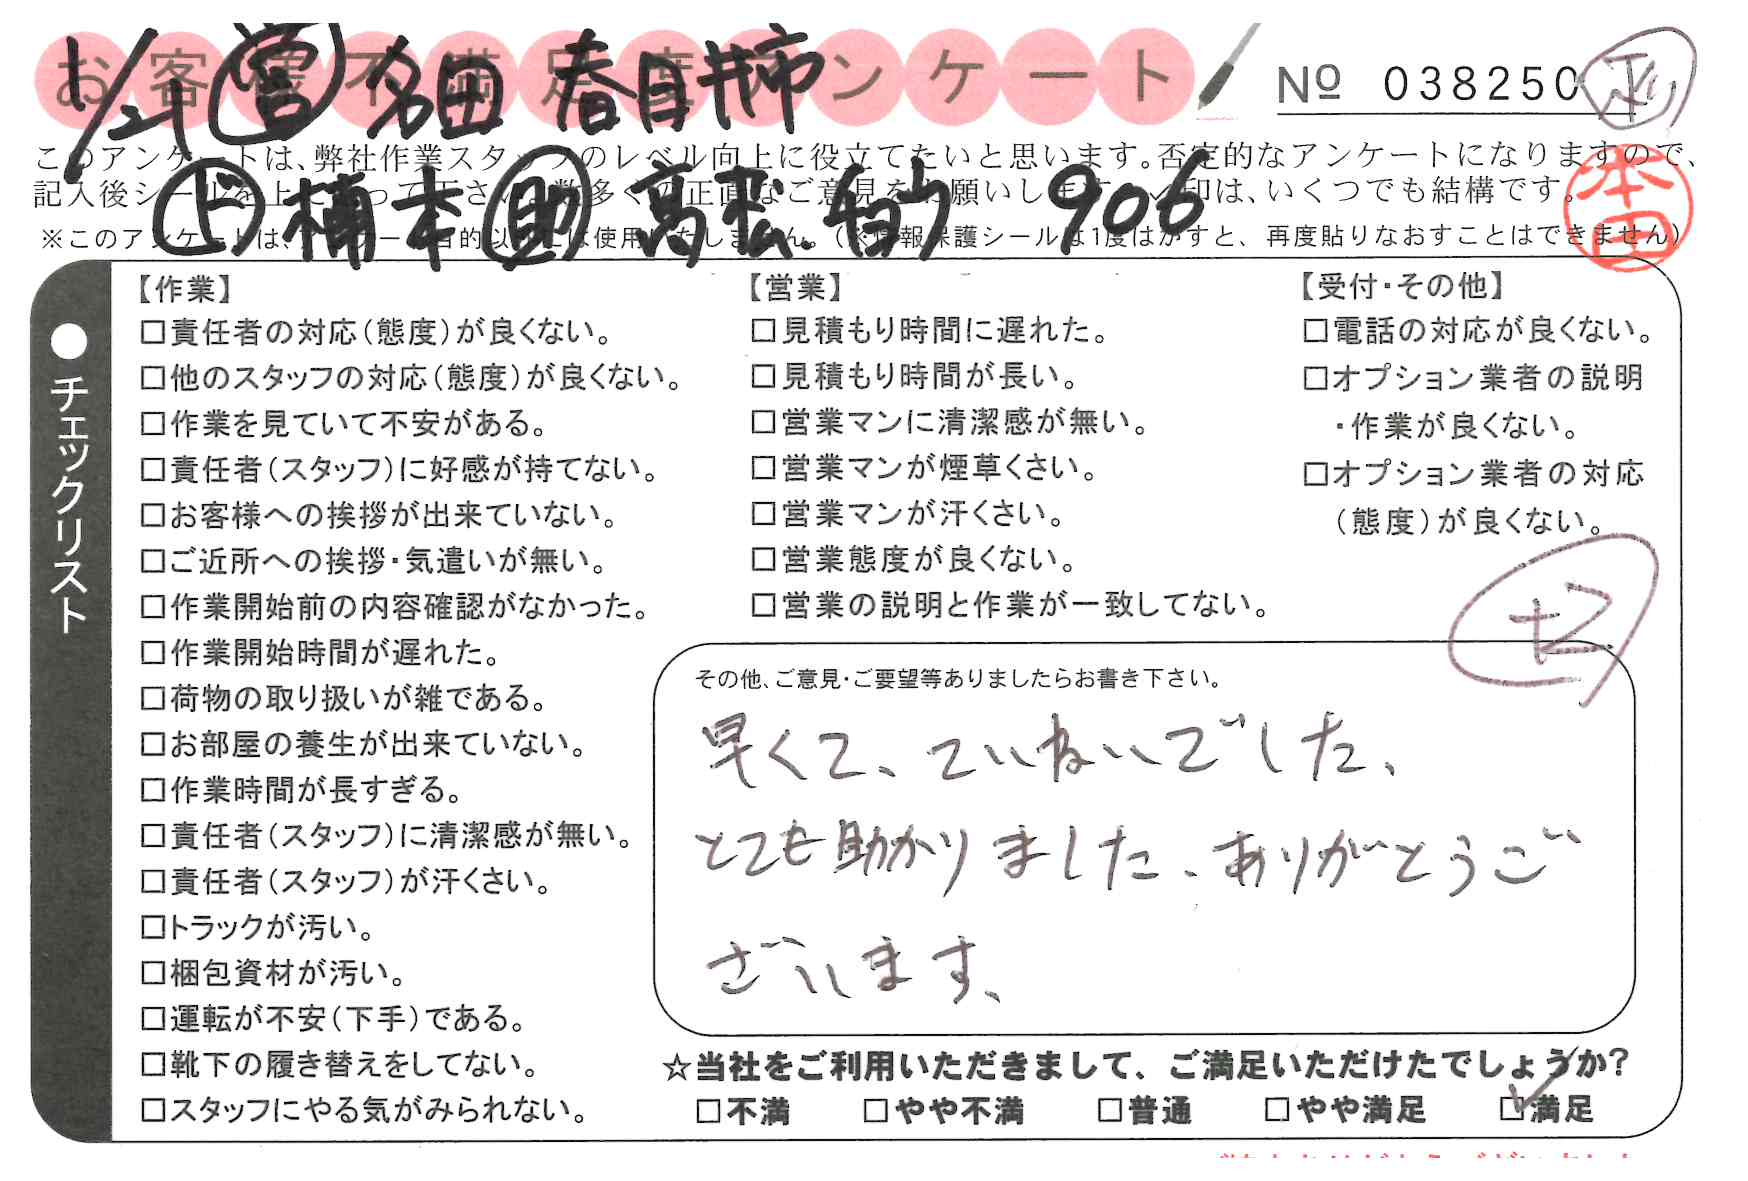 お客様不満足度アンケート
№ 038250
1/21 営 名田 春日井市
このアンケートは、弊社作業スタッフのレベル向上に役立てたいと思います。否定的なアンケートになりますので、
記入後シールを上に貼って下さい。数多くの正直なご意見をお願いします。レ印は、いくつでも結構です。
ド 楠本 助 高松 906
本田
※このアンケートは、アンケート目的以外には使用いたしません。(※情報保護シールは1度はがすと、再度貼りなおすことはできません)
●チェックリスト
【作業】
□責任者の対応(態度)が良くない。
□他のスタッフの対応(態度)が良くない。
□作業を見ていて不安がある。
□責任者(スタッフ)に好感が持てない。
□お客様への挨拶が出来ていない。
□ご近所への挨拶・気遣いが無い。
□作業開始前の内容確認がなかった。
□作業開始時間が遅れた。
□荷物の取り扱いが雑である。
□お部屋の養生が出来ていない。
□作業時間が長すぎる。
□責任者(スタッフ)に清潔感が無い。
□責任者(スタッフ)が汗くさい。
□トラックが汚い。
□梱包資材が汚い。
□運転が不安(下手)である。
□靴下の履き替えをしてない。
□スタッフにやる気がみられない。
【営業】
□見積もり時間に遅れた。
□見積もり時間が長い。
□営業マンに清潔感が無い。
□営業マンが煙草くさい。
□営業マンが汗くさい。
□営業態度が良くない。
□営業の説明と作業が一致してない。
【受付・その他】
□電話の対応が良くない。
□オプション業者の説明
・作業が良くない。
□オプション業者の対応
(態度)が良くない。
その他、ご意見・ご要望等ありましたらお書き下さい。
早くて、ていねいでした、
とても助かりました、ありがとうご
ざいます、
☆当社をご利用いただきまして、ご満足いただけたでしょうか?
□不満 □やや不満 □普通 □やや満足 ☑満足